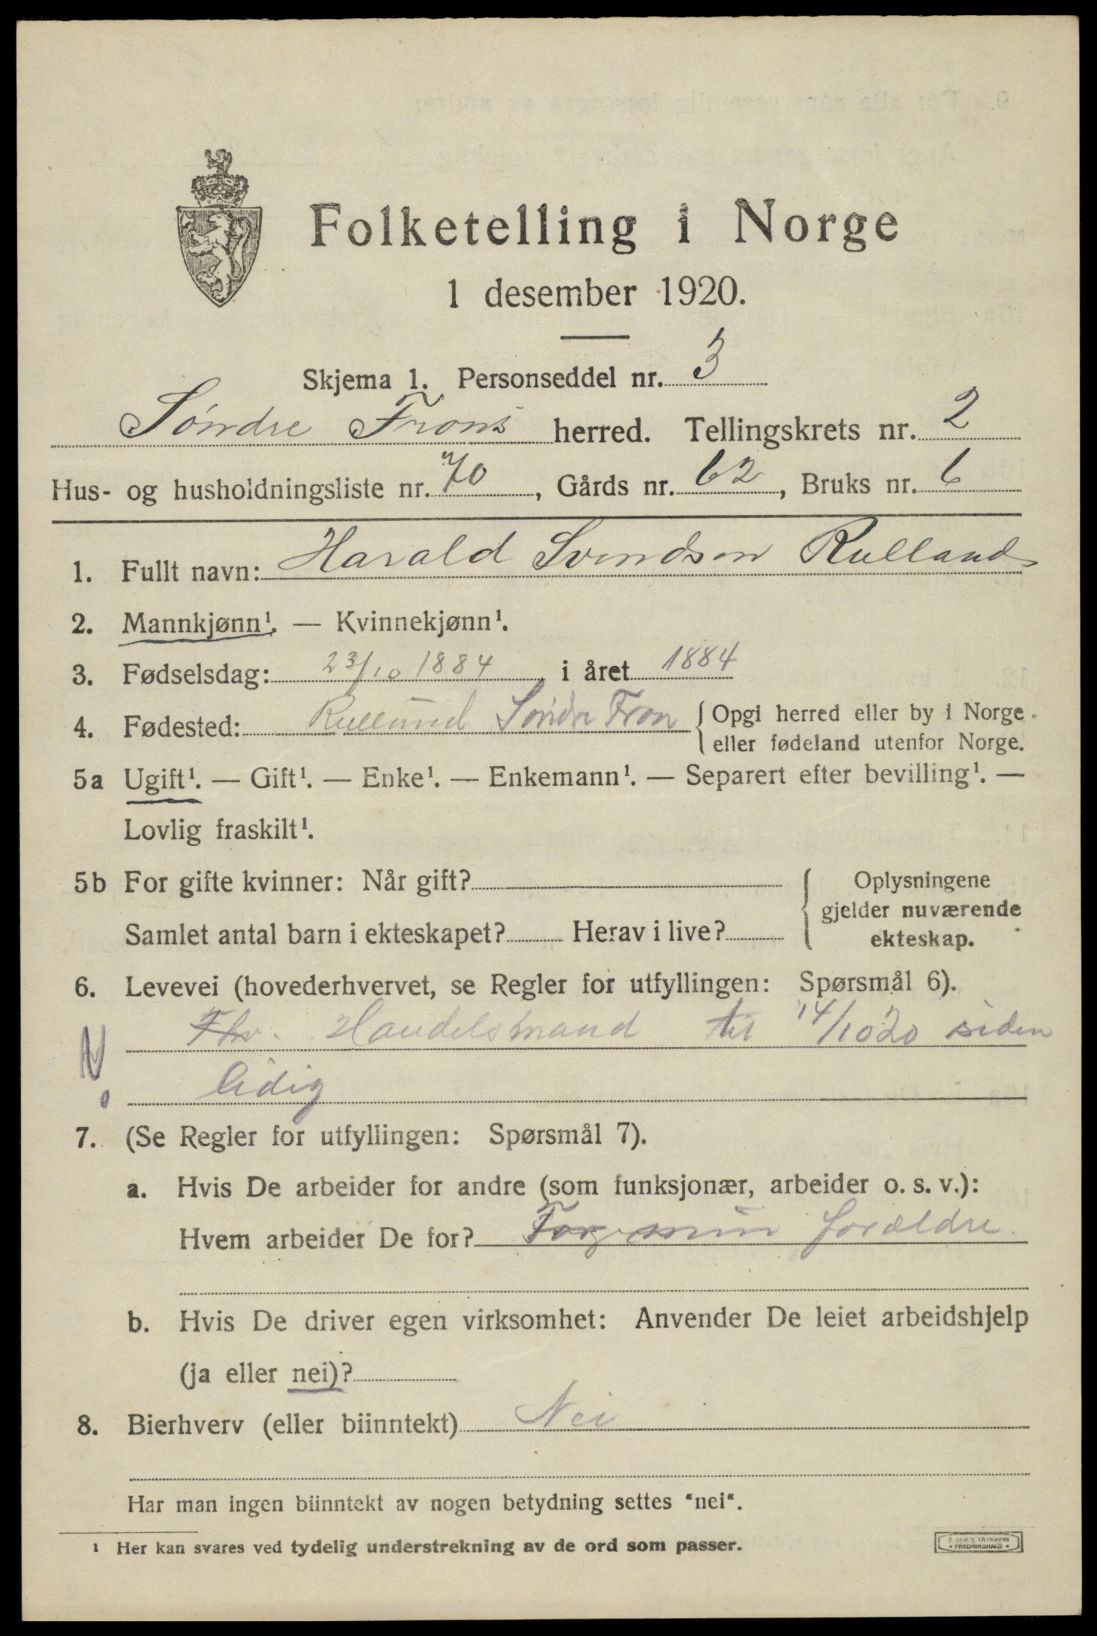 Folketelling i Norge
1 desember 1920.
Skjema 1. Personseddel nr. 3
Søndre Frons herred. Tellingskrets nr. 2
Hus- og husholdningsliste nr. 70, Gårds nr. 62, Bruks nr. 6
1. Fullt navn: Harald Svendsen Rulland
2. Mannkjønn¹. — Kvinnekjønn¹.
3. Fødselsdag: 23/10 1884, i året 1884
4. Fødested: Rullund Søndre Fron {Opgi herred eller by i Norge
eller fødeland utenfor Norge.
5a Ugift¹. — Gift¹. — Enke¹. — Enkemann¹. — Separert efter bevilling¹. —
Lovlig fraskilt¹.
5b For gifte kvinner: Når gift?
Samlet antal barn i ekteskapet? Herav i live?
Oplysningene
gjelder nuværende
ekteskap.
6. Levevei (hovederhvervet, se Regler for utfyllingen: Spørsmål 6).
Fhv. Handelsmand til 14/10 20 siden
N.
ledig
7. (Se Regler for utfyllingen: Spørsmål 7).
a. Hvis De arbeider for andre (som funksjonær, arbeider o. s. v.):
Hvem arbeider De for? For min forældre.
b. Hvis De driver egen virksomhet: Anvender De leiet arbeidshjelp
(ja eller nei)?
8. Bierhverv (eller biinntekt) Nei
Har man ingen biinntekt av nogen betydning settes "nei".
¹ Her kan svares ved tydelig understrekning av de ord som passer.
FREDRIKSHALD